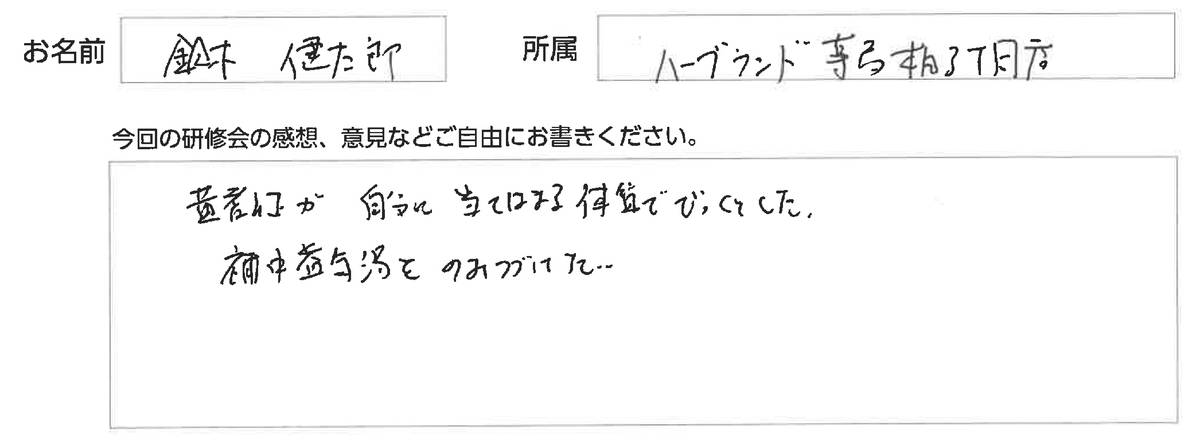 お名前 鈴木 健太郎 所属 ハーブランド 3丁目店
今回の研修会の感想、意見などご自由にお書きください。
黄耆証が 自分に 当てはまる体質でびっくりした.
補中益気湯を のみつづけた…